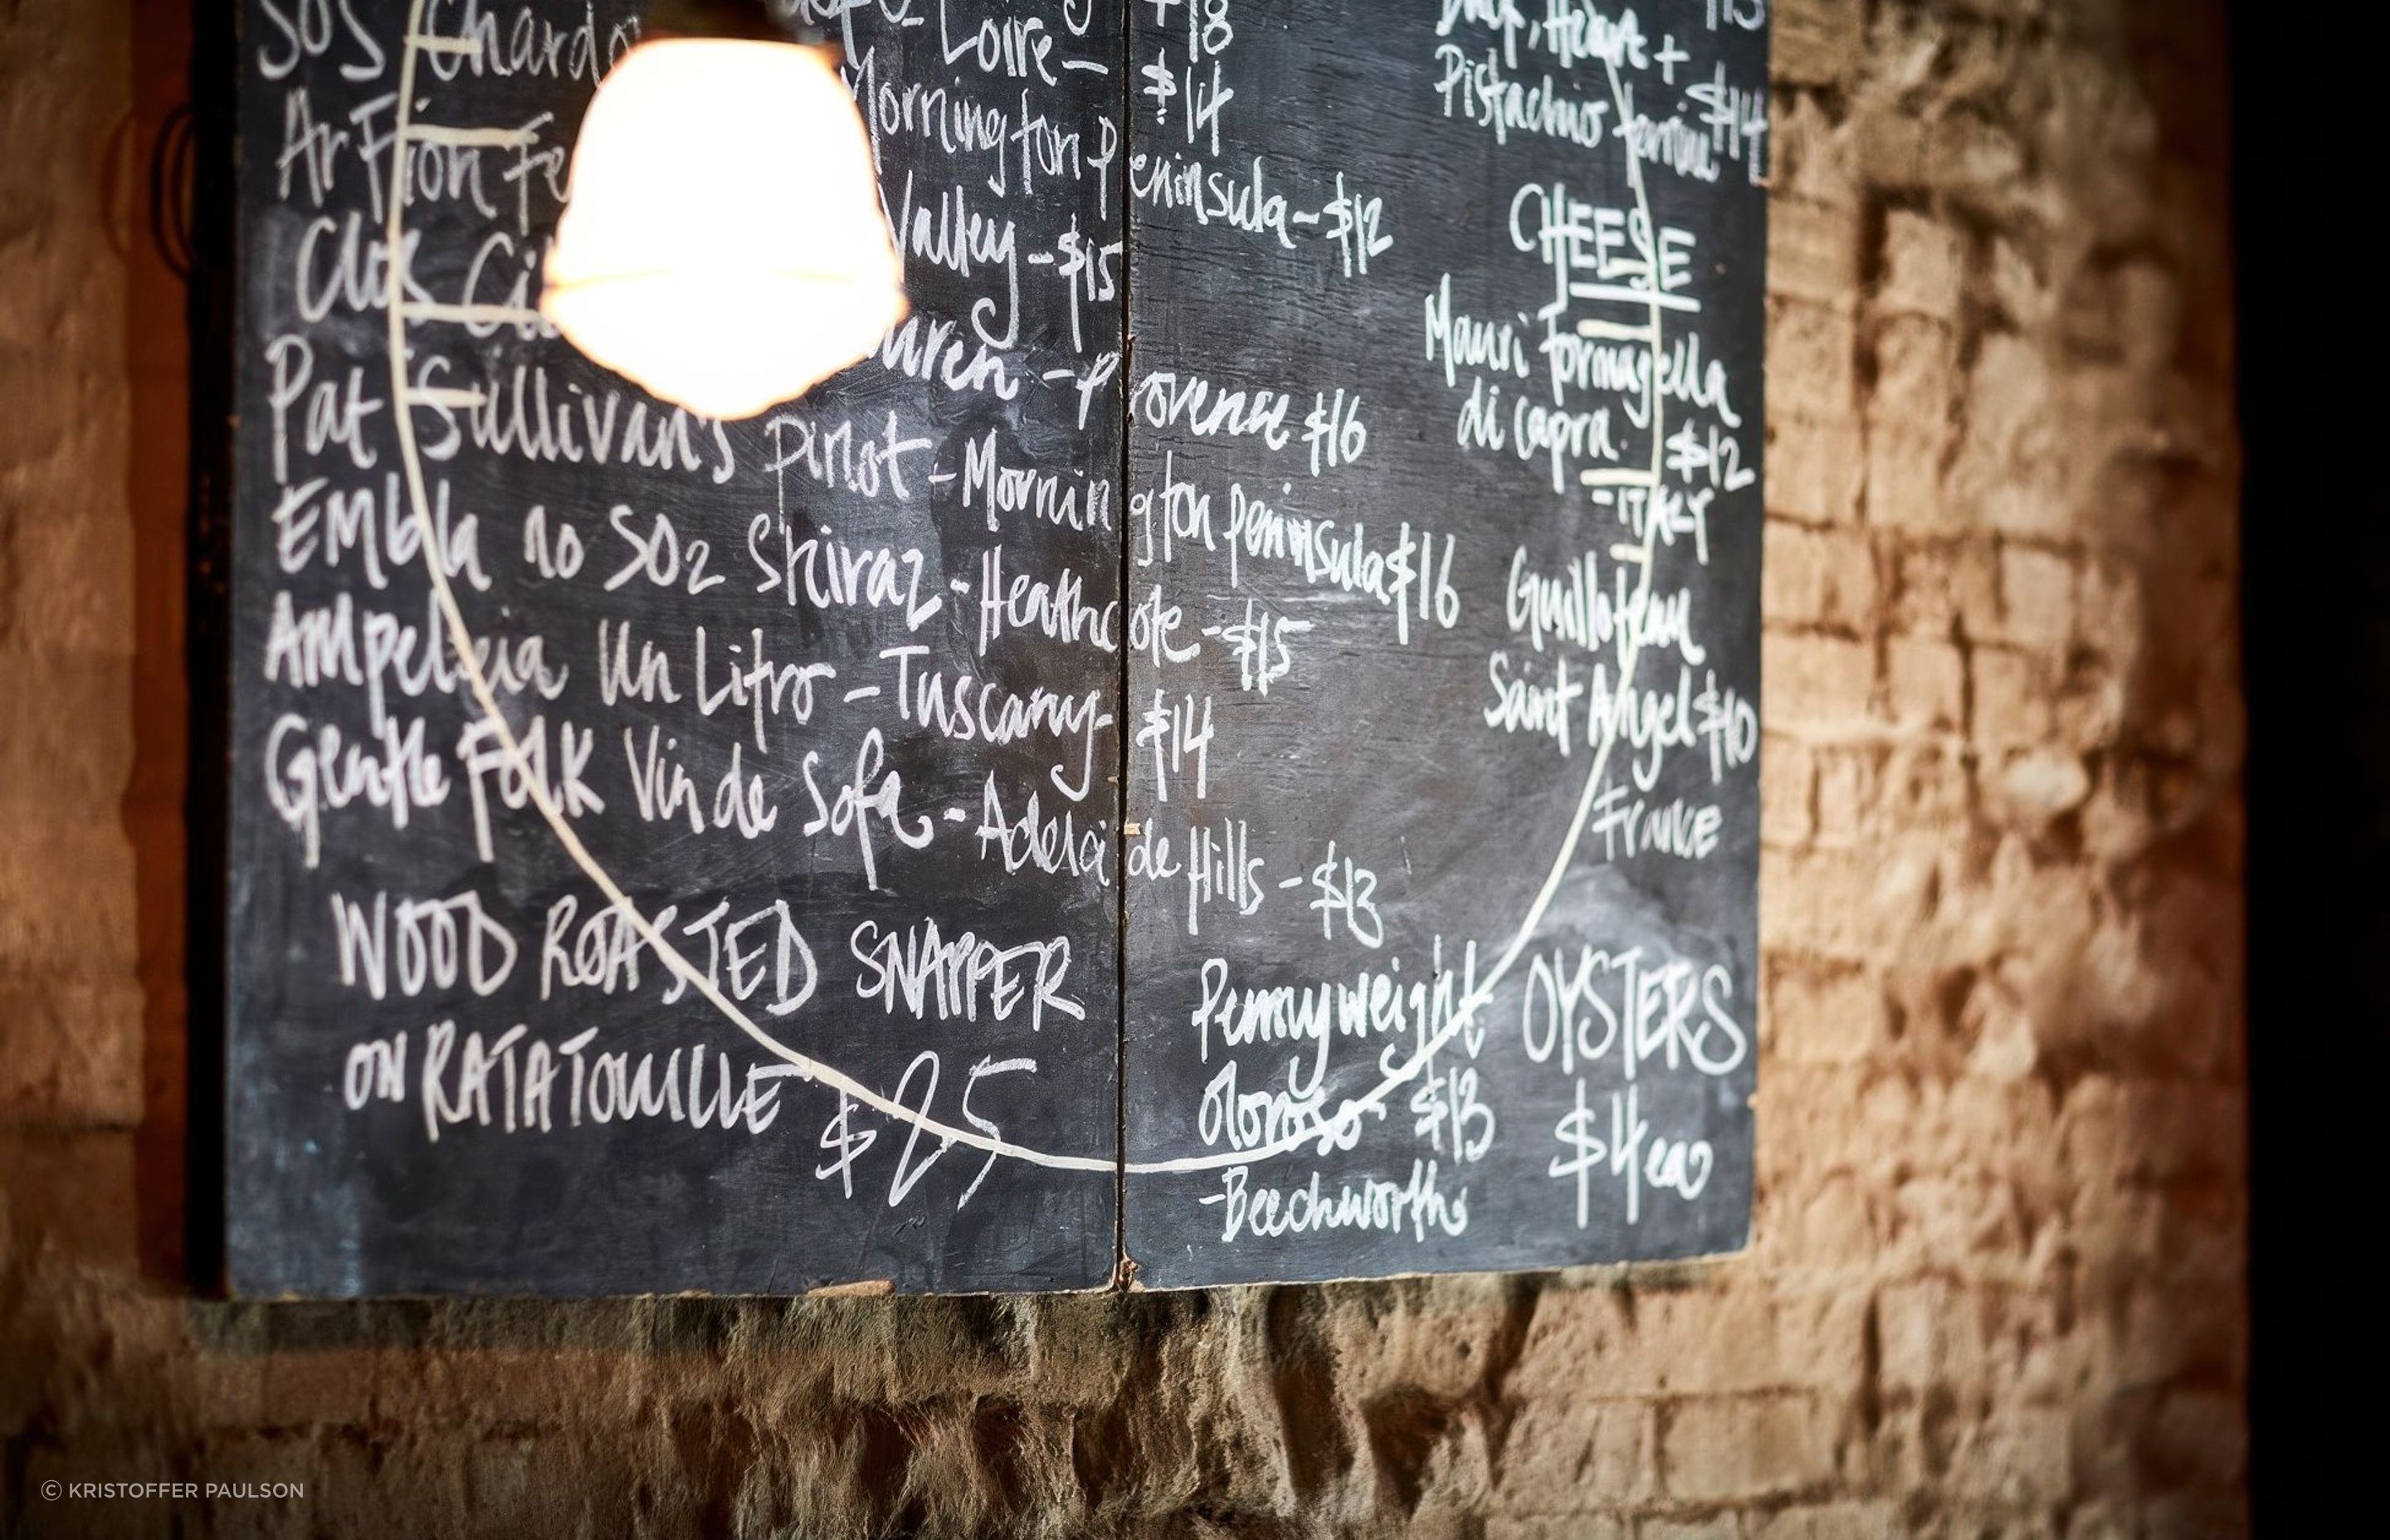 SOS Chardo
Loire -
$18
Ar Fion Fe
Mornington Peninsula - $12
$14
Clos Ci
Valley - $15
Provense $16
Pat Sullivan's pinot - Mornington Peninsula $16
Embla no SO2 Shiraz - Heathcote - $15
Ampeleia Un Litro - Tuscany - $14
Gentle Folk Vin de Sofa - Adelaide Hills - $13
WOOD ROASTED SNAPPER
ON RATATOUILLE $25
Pennyweight
Oloroso - $13
- Beechworth
Pistachio $14
CHEESE
Mauri formagella
di capra. $12
- ITALY
Guilloteau
Saint Angel $10
FRANCE
OYSTERS
$4ea
© KRISTOFFER PAULSON